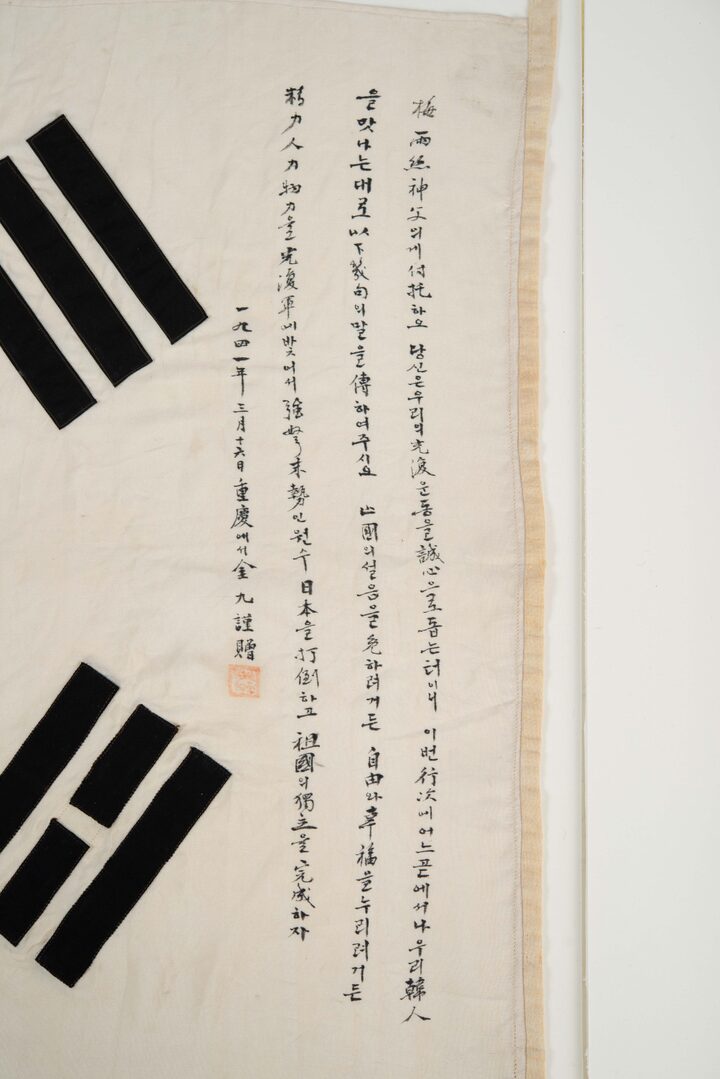 梅雨絲神父의게付托하오 당신은우리의光復운동을誠心으로돕는터이니 이번行次에어느곧에서나우리韓人
을맛나는대로以下幾句의말을傳하여주시오 亡國의설음을免하려거든 自由와幸福을누리려거든
精力人力物力을光復軍에밫어서强弩末勢인원수日本을打倒하고 祖國의獨立을完成하자
一九四一年三月十六日重慶에서金九謹贈